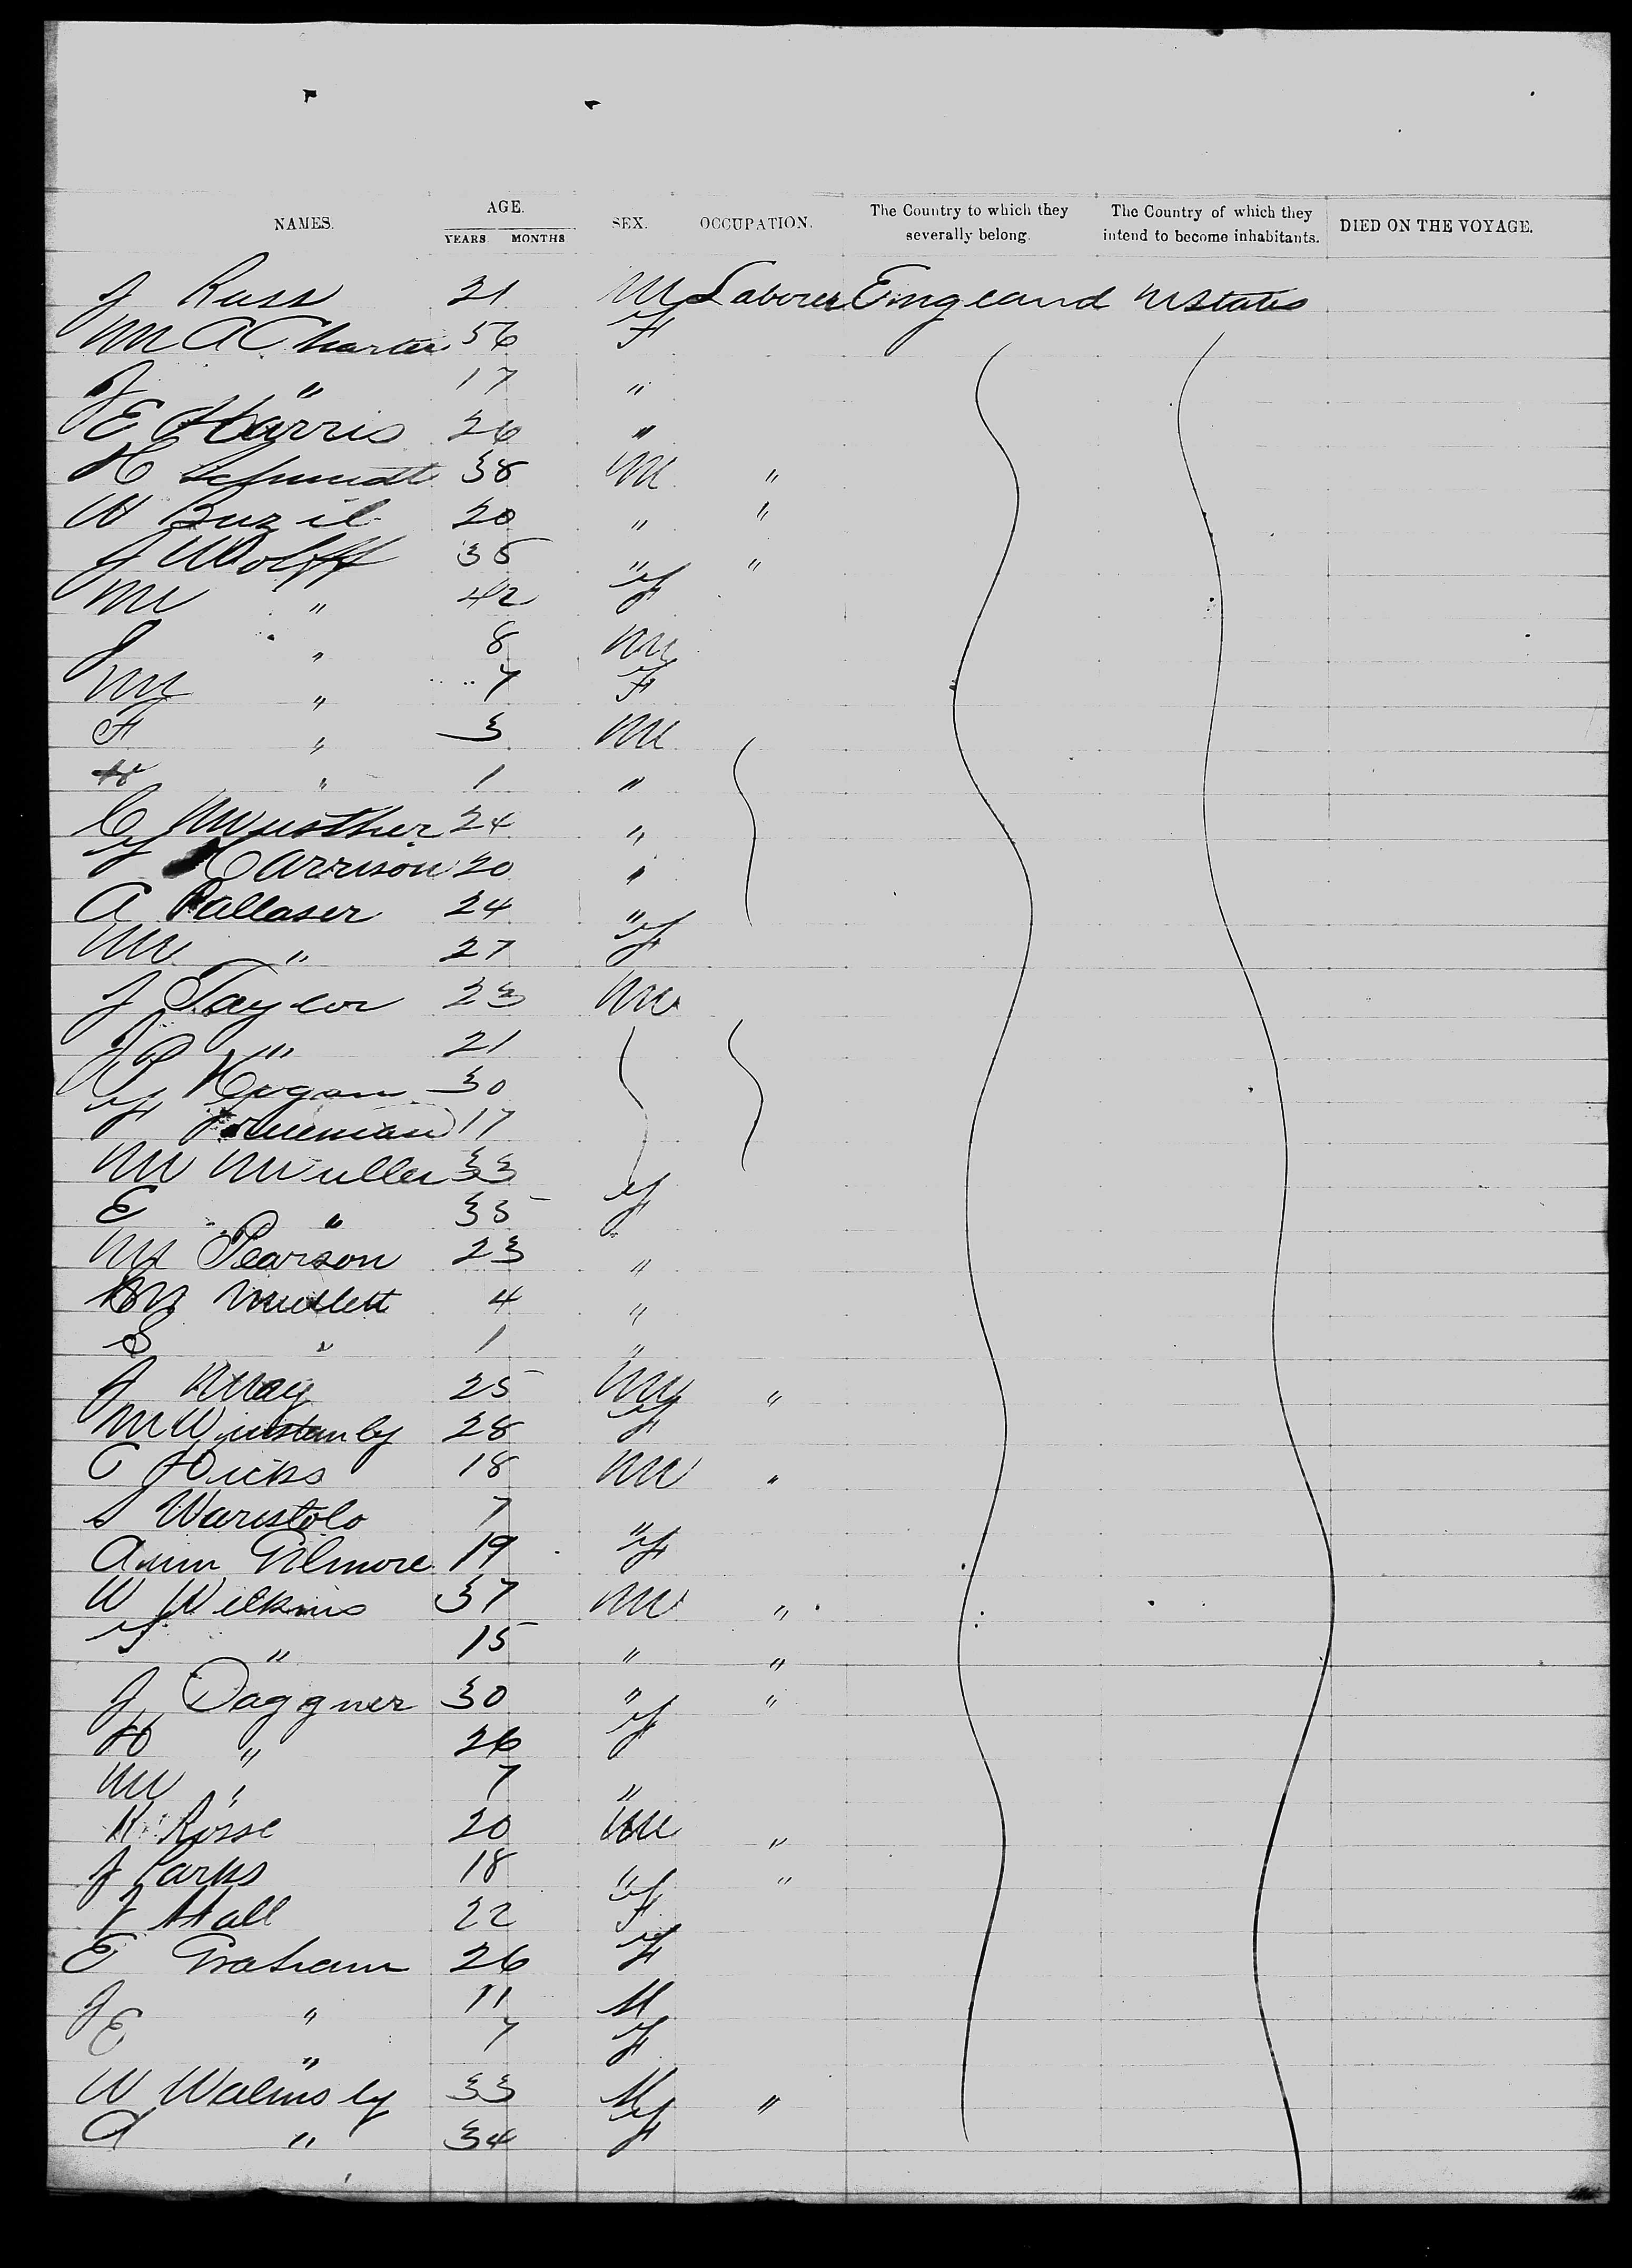 NAMES. AGE. YEARS. MONTHS SEX. OCCUPATION. The Country to which they severally belong. The Country of which they intend to become inhabitants. DIED ON THE VOYAGE.
J Russ 21 M Laborer England U States
M A Charter 56 F
J " 17 "
E Harris 26 "
H Schmidt 38 M "
W Buzil 20 " "
J Wolff 35 " "
M " 42 F
J " 8 M
M " 7 F
F " 3 M
" 1 "
C 24 "
F Harrison 20 "
A Pallaser 24 "
M " 27 F
J Taylor 23 M
J " 21
P Hogan 30
F 17
M Muller 33
E " 35 F
M Pearson 23 "
4 "
S " 1 "
J May 25 M "
M Winstanly 28 F
C Hicks 18 M "
S 7 "
Ann Gilmore 19 F
W Wilkins 37 M "
F " 15 " "
J Daggner 30 " "
H " 26 F
M " 7 "
R Rosse 20 M "
J Parks 18 " "
J Hall 22 F
E Graham 26 F
J " 11 M
E " 7 F
W Walmsly 33 M "
A " 34 F